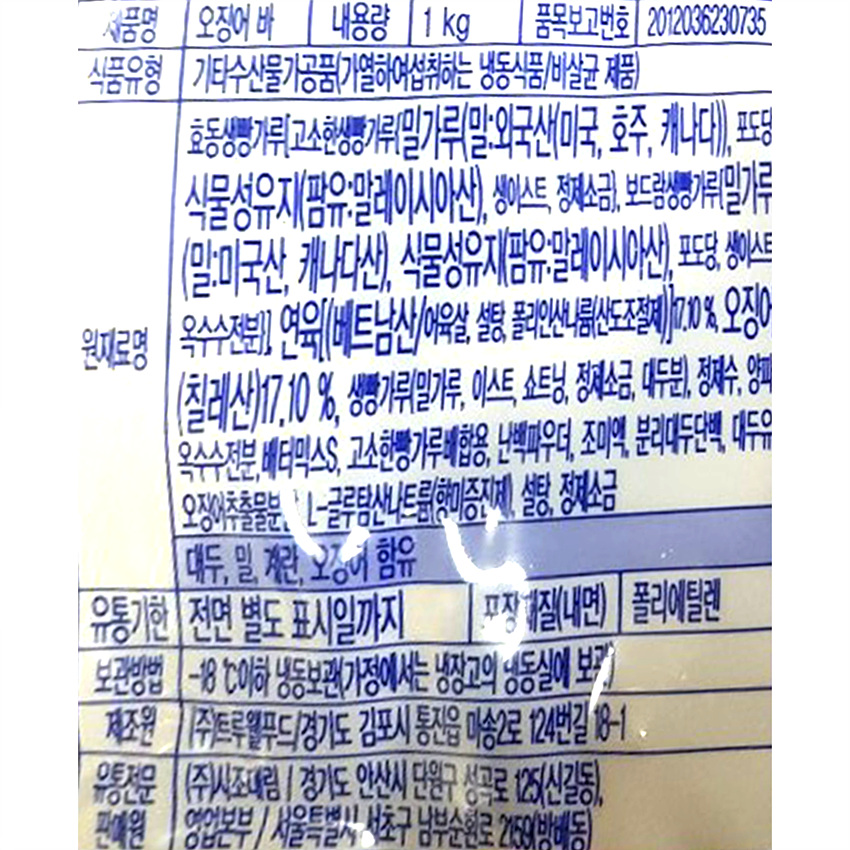 제품명 오징어 바 내용량 1 kg 품목보고번호 2012036230735
식품유형 기타수산물가공품(가열하여섭취하는 냉동식품/비살균 제품)
효동생빵가루[고소한생빵가루{밀가루(밀:외국산(미국, 호주, 캐나다)), 포도당
식물성유지(팜유:말레이시아산), 생이스트, 정제소금}, 보드람생빵가루{밀가루
(밀:미국산, 캐나다산), 식물성유지(팜유:말레이시아산), 포도당, 생이스트
원재료명 옥수수전분}], 연육[(베트남산/어육살, 설탕, 폴리인산나트륨(산도조절제)]17.10 %, 오징어
(칠레산)17.10 %, 생빵가루(밀가루, 이스트, 쇼트닝, 정제소금, 대두분), 정제수, 양파
옥수수전분, 배터믹스S, 고소한빵가루배합용, 난백파우더, 조미액, 분리대두단백, 대두유
오징어추출물분말, L-글루탐산나트륨(향미증진제), 설탕, 정제소금
대두, 밀, 계란, 오징어 함유
유통기한 전면 별도 표시일까지 포장재질(내면) 폴리에틸렌
보관방법 -18 ℃이하 냉동보관(가정에서는 냉장고의 냉동실에 보관)
제조원 (주)트루웰푸드/경기도 김포시 통진읍 마송2로 124번길 18-1
유통전문 (주)사조대림 / 경기도 안산시 단원구 성곡로 125(신길동),
판매원 영업본부 / 서울특별시 서초구 남부순환로 2159(방배동)